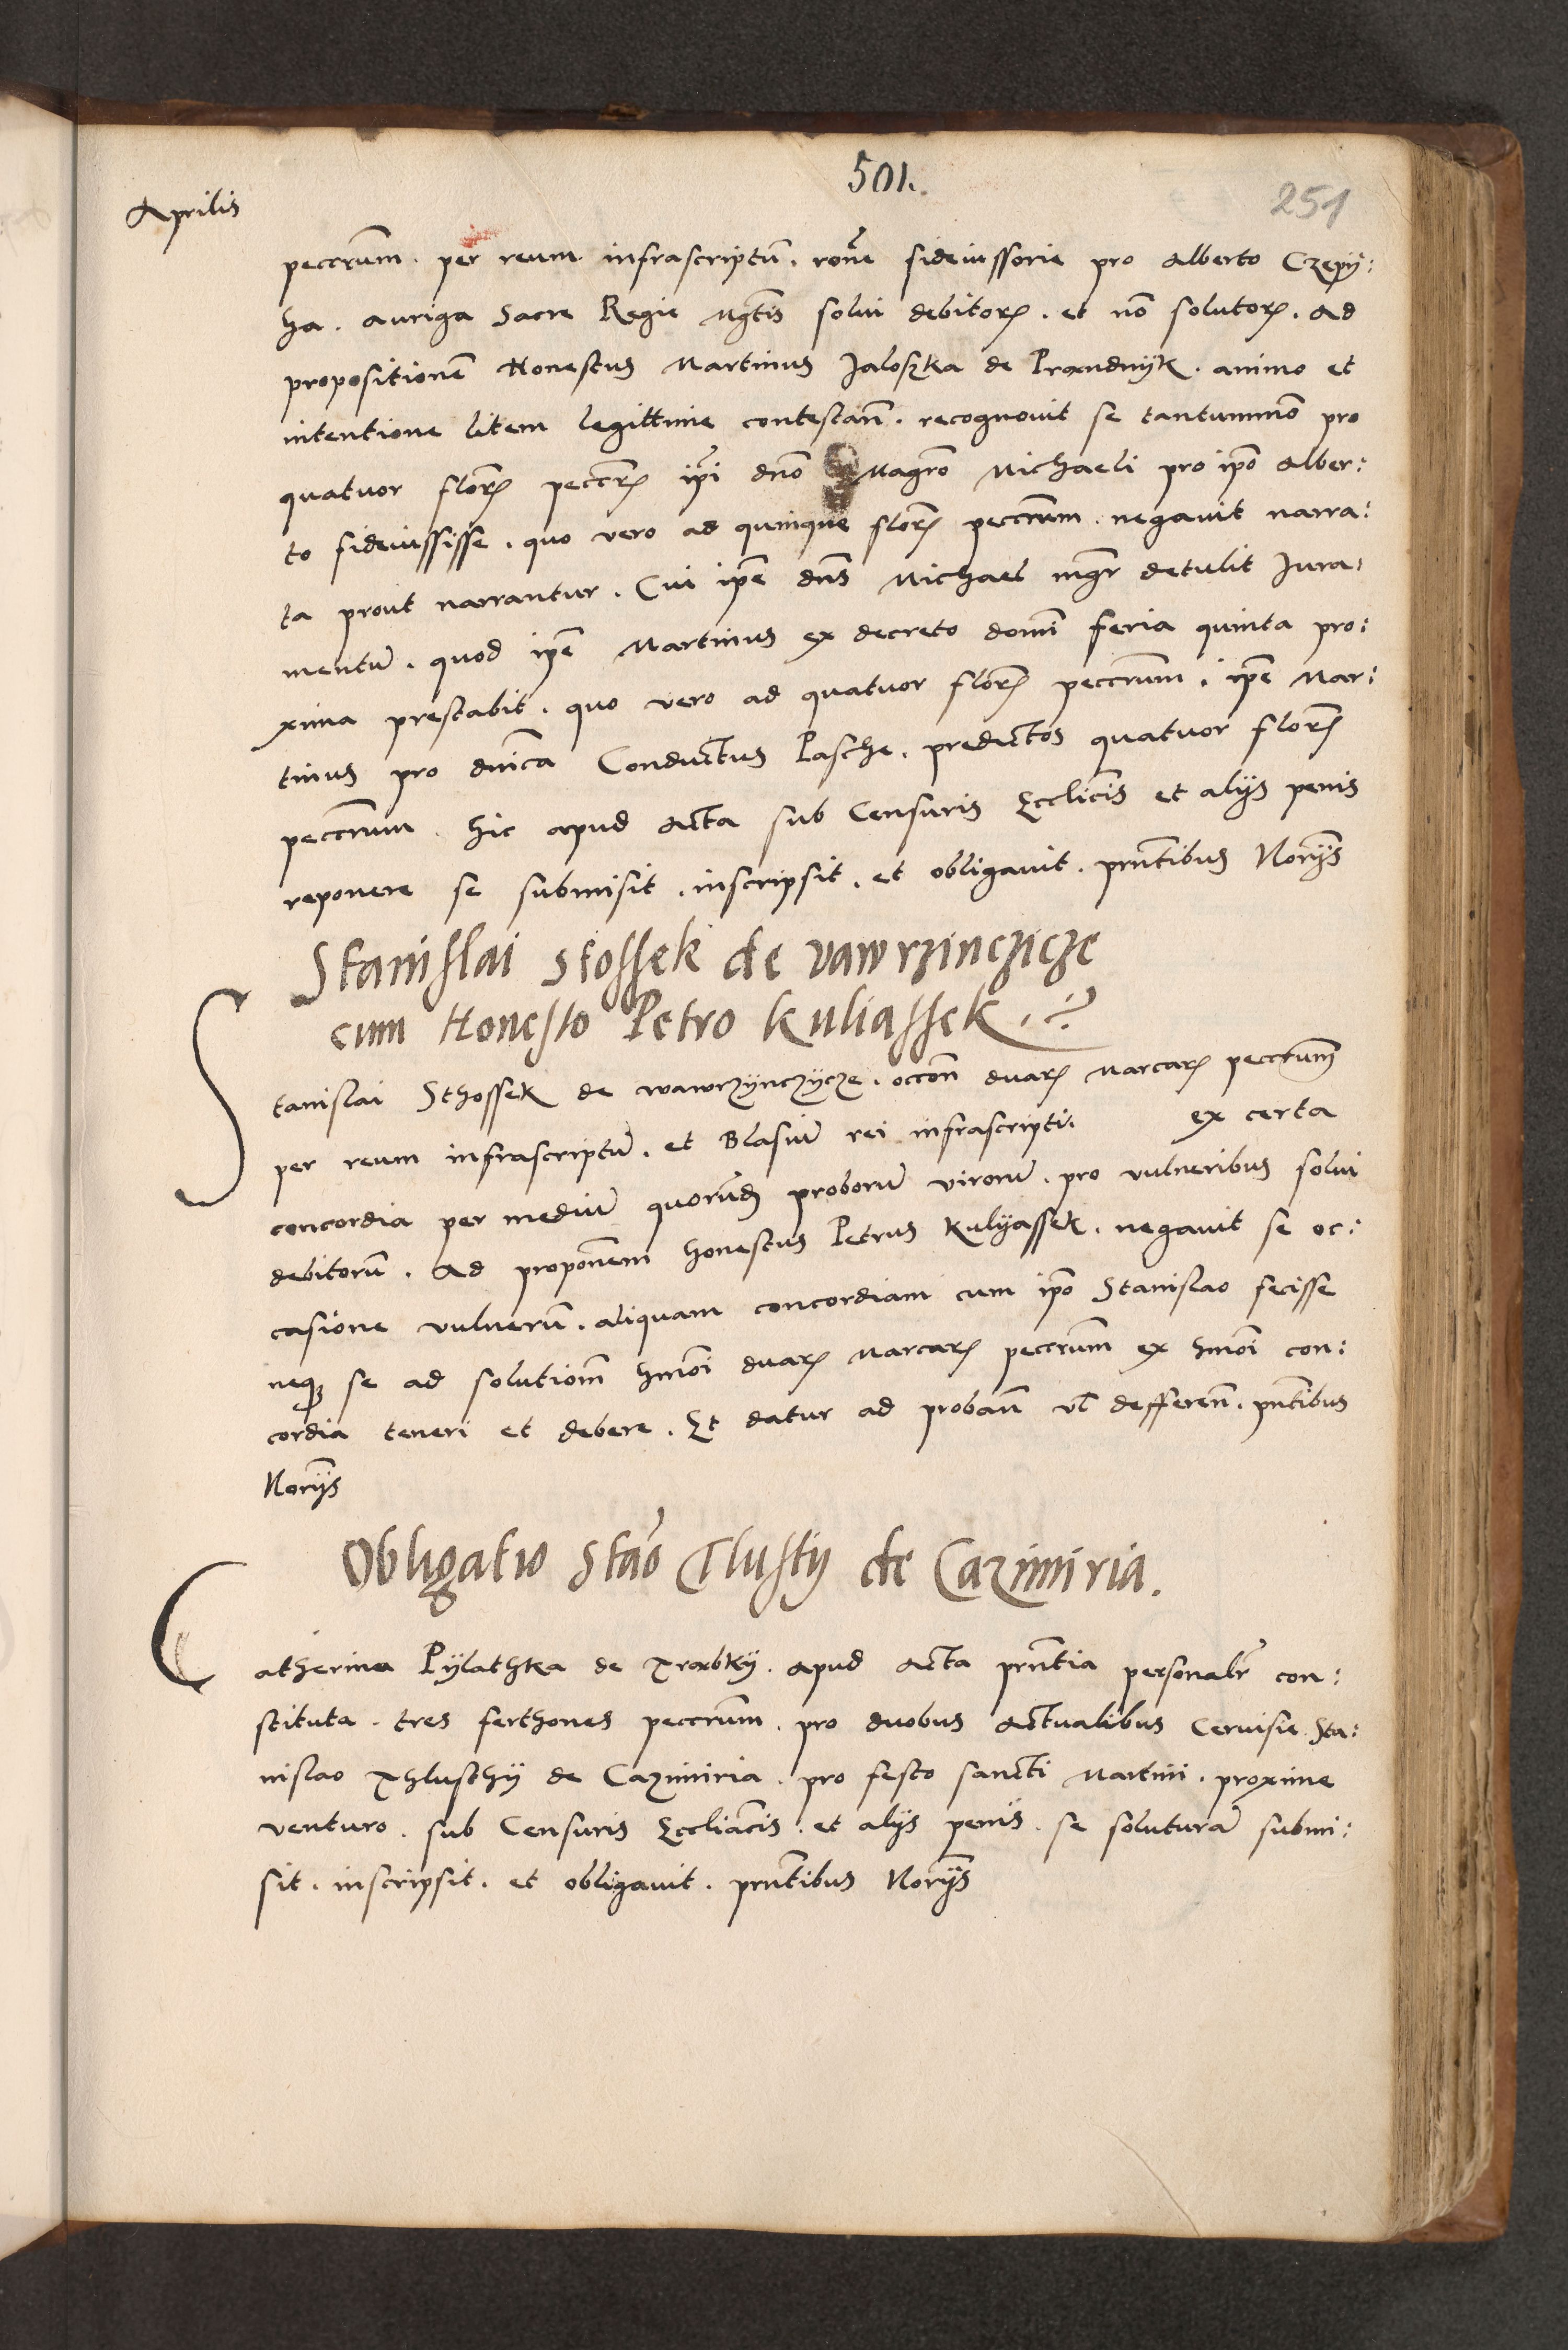 501.
251
Aprilis
peccrum. per reum infrascriptũ. rone fideiussorie pro Alberto Czepy:
ha. auriga Sacre Regie Mgtis solui debitorꝝ. et nõ solutorꝝ. Ad
propositionẽ Honestus Martinus Jaloszka de Prandnyk. animo et
intentione litem legittime contestan̄. recognouit se tantummõ pro
quatuor florꝝ peccrꝝ ipi dno Magro Michaeli pro ipo Alber:
to fideiussisse. quo vero ad quinque florꝝ peccrum. negauit narra:
ta prout narrantur. Cui ipe dns Michael mgr detulit Jura:
mentũ. quod ipe Martinus ex decreto domi feria quinta pro:
xima prestabit. quo vero ad quatuor florꝝ peccrum. ipe Mar:
tinus pro dnica Conductus Pasche. predictos quatuor florꝝ
peccrum. hic apud Acta sub Censuris Ecclicis et alijs penis
reponere se submisit. inscripsit. et obligauit. prntibus Norijs
Stanislai Stossek de vawrzinczicze
cum Honesto Petro kuliassek.
Stanislai Sthossek de wawrzynczycze. occon̄ duarꝝ Marcarꝝ peccrum
per reum infrascriptũ. et Blasiũ rei infrascripti. ex certa
concordia per mediũ quorũdꝫ proborũ virorũ. pro vulneribus solui
debitorũ. Ad proponem honestus Petrus Kulyassek. negauit se oc:
casione vulnerũ. aliquam concordiam cum ipo Stanislao fecisse
neqꝫ se ad solutiom̄ hmoi duarꝝ Marcarꝝ peccrum ex hmoi con:
cordia teneri et debere. Et datur ad proban̄ vl defferen̄. pntibus
Norijs
Obligatio Stao Tlusty de Cazimiria.
Catherina Pylathka de Grabky. apud Acta prntia personalr con:
stituta. tres ferthones peccrum. pro duobus Actualibus Ceruisie Sta:
nislao Thlusthy de Cazimiria. pro festo sancti Martini. proxime
venturo. sub Censuris Eccliacis. et alijs penis. se soluturã submi:
sit. inscripsit. et obligauit. prntibus Norijs